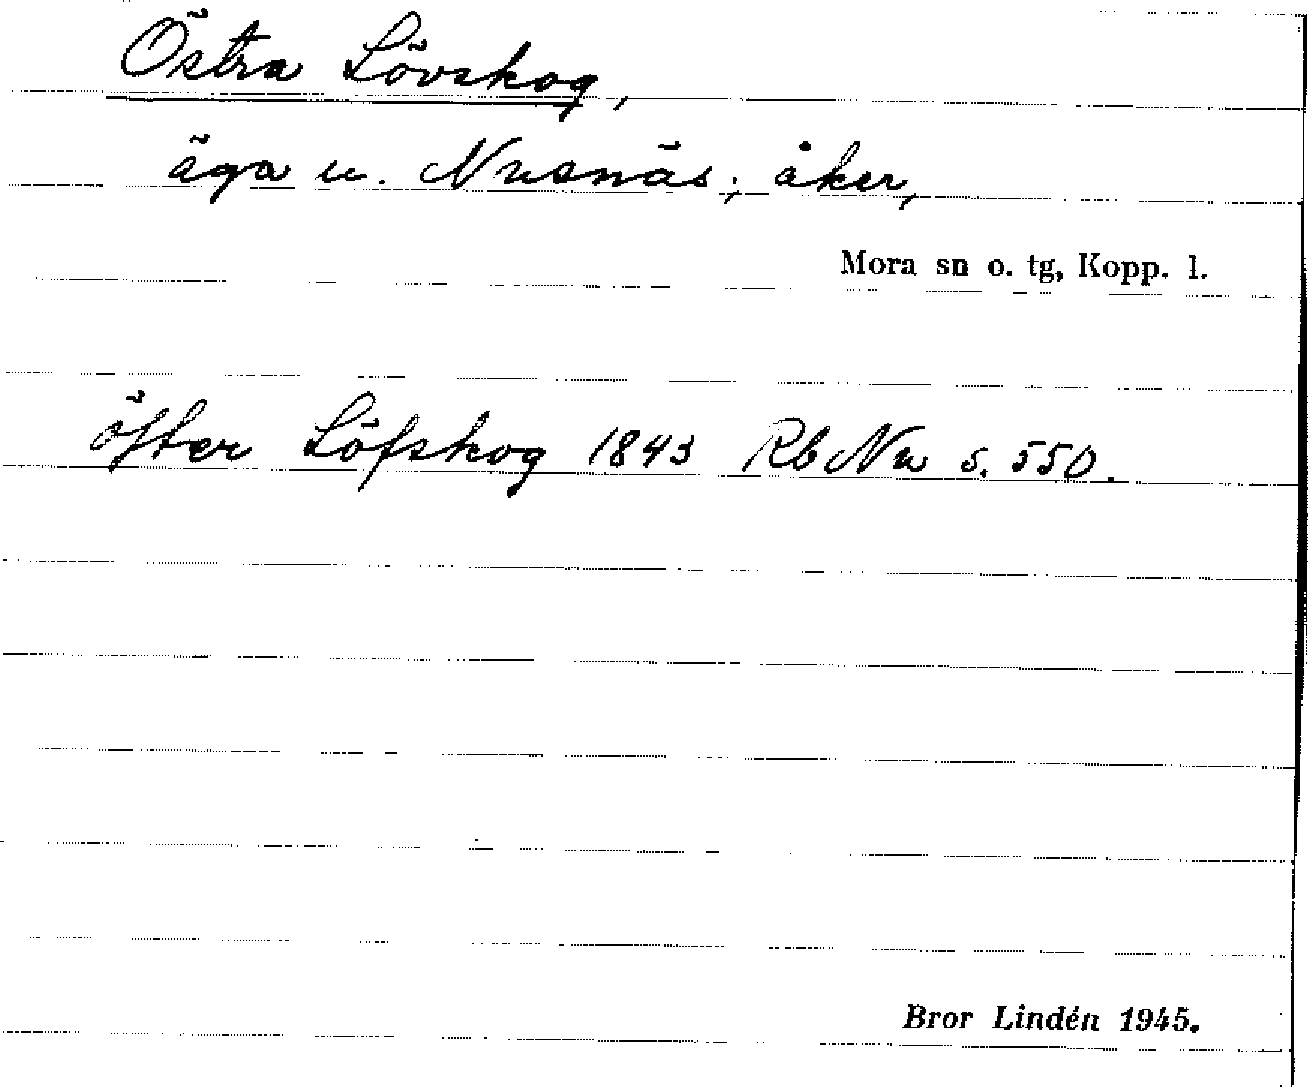 Östra Lövskog,
äga u. Nusnäs; åker,
Mora sn o. tg, Kopp. l.
öfter Löfskog 1843 Rb Nu s. 550.
Bror Lindén 1945.